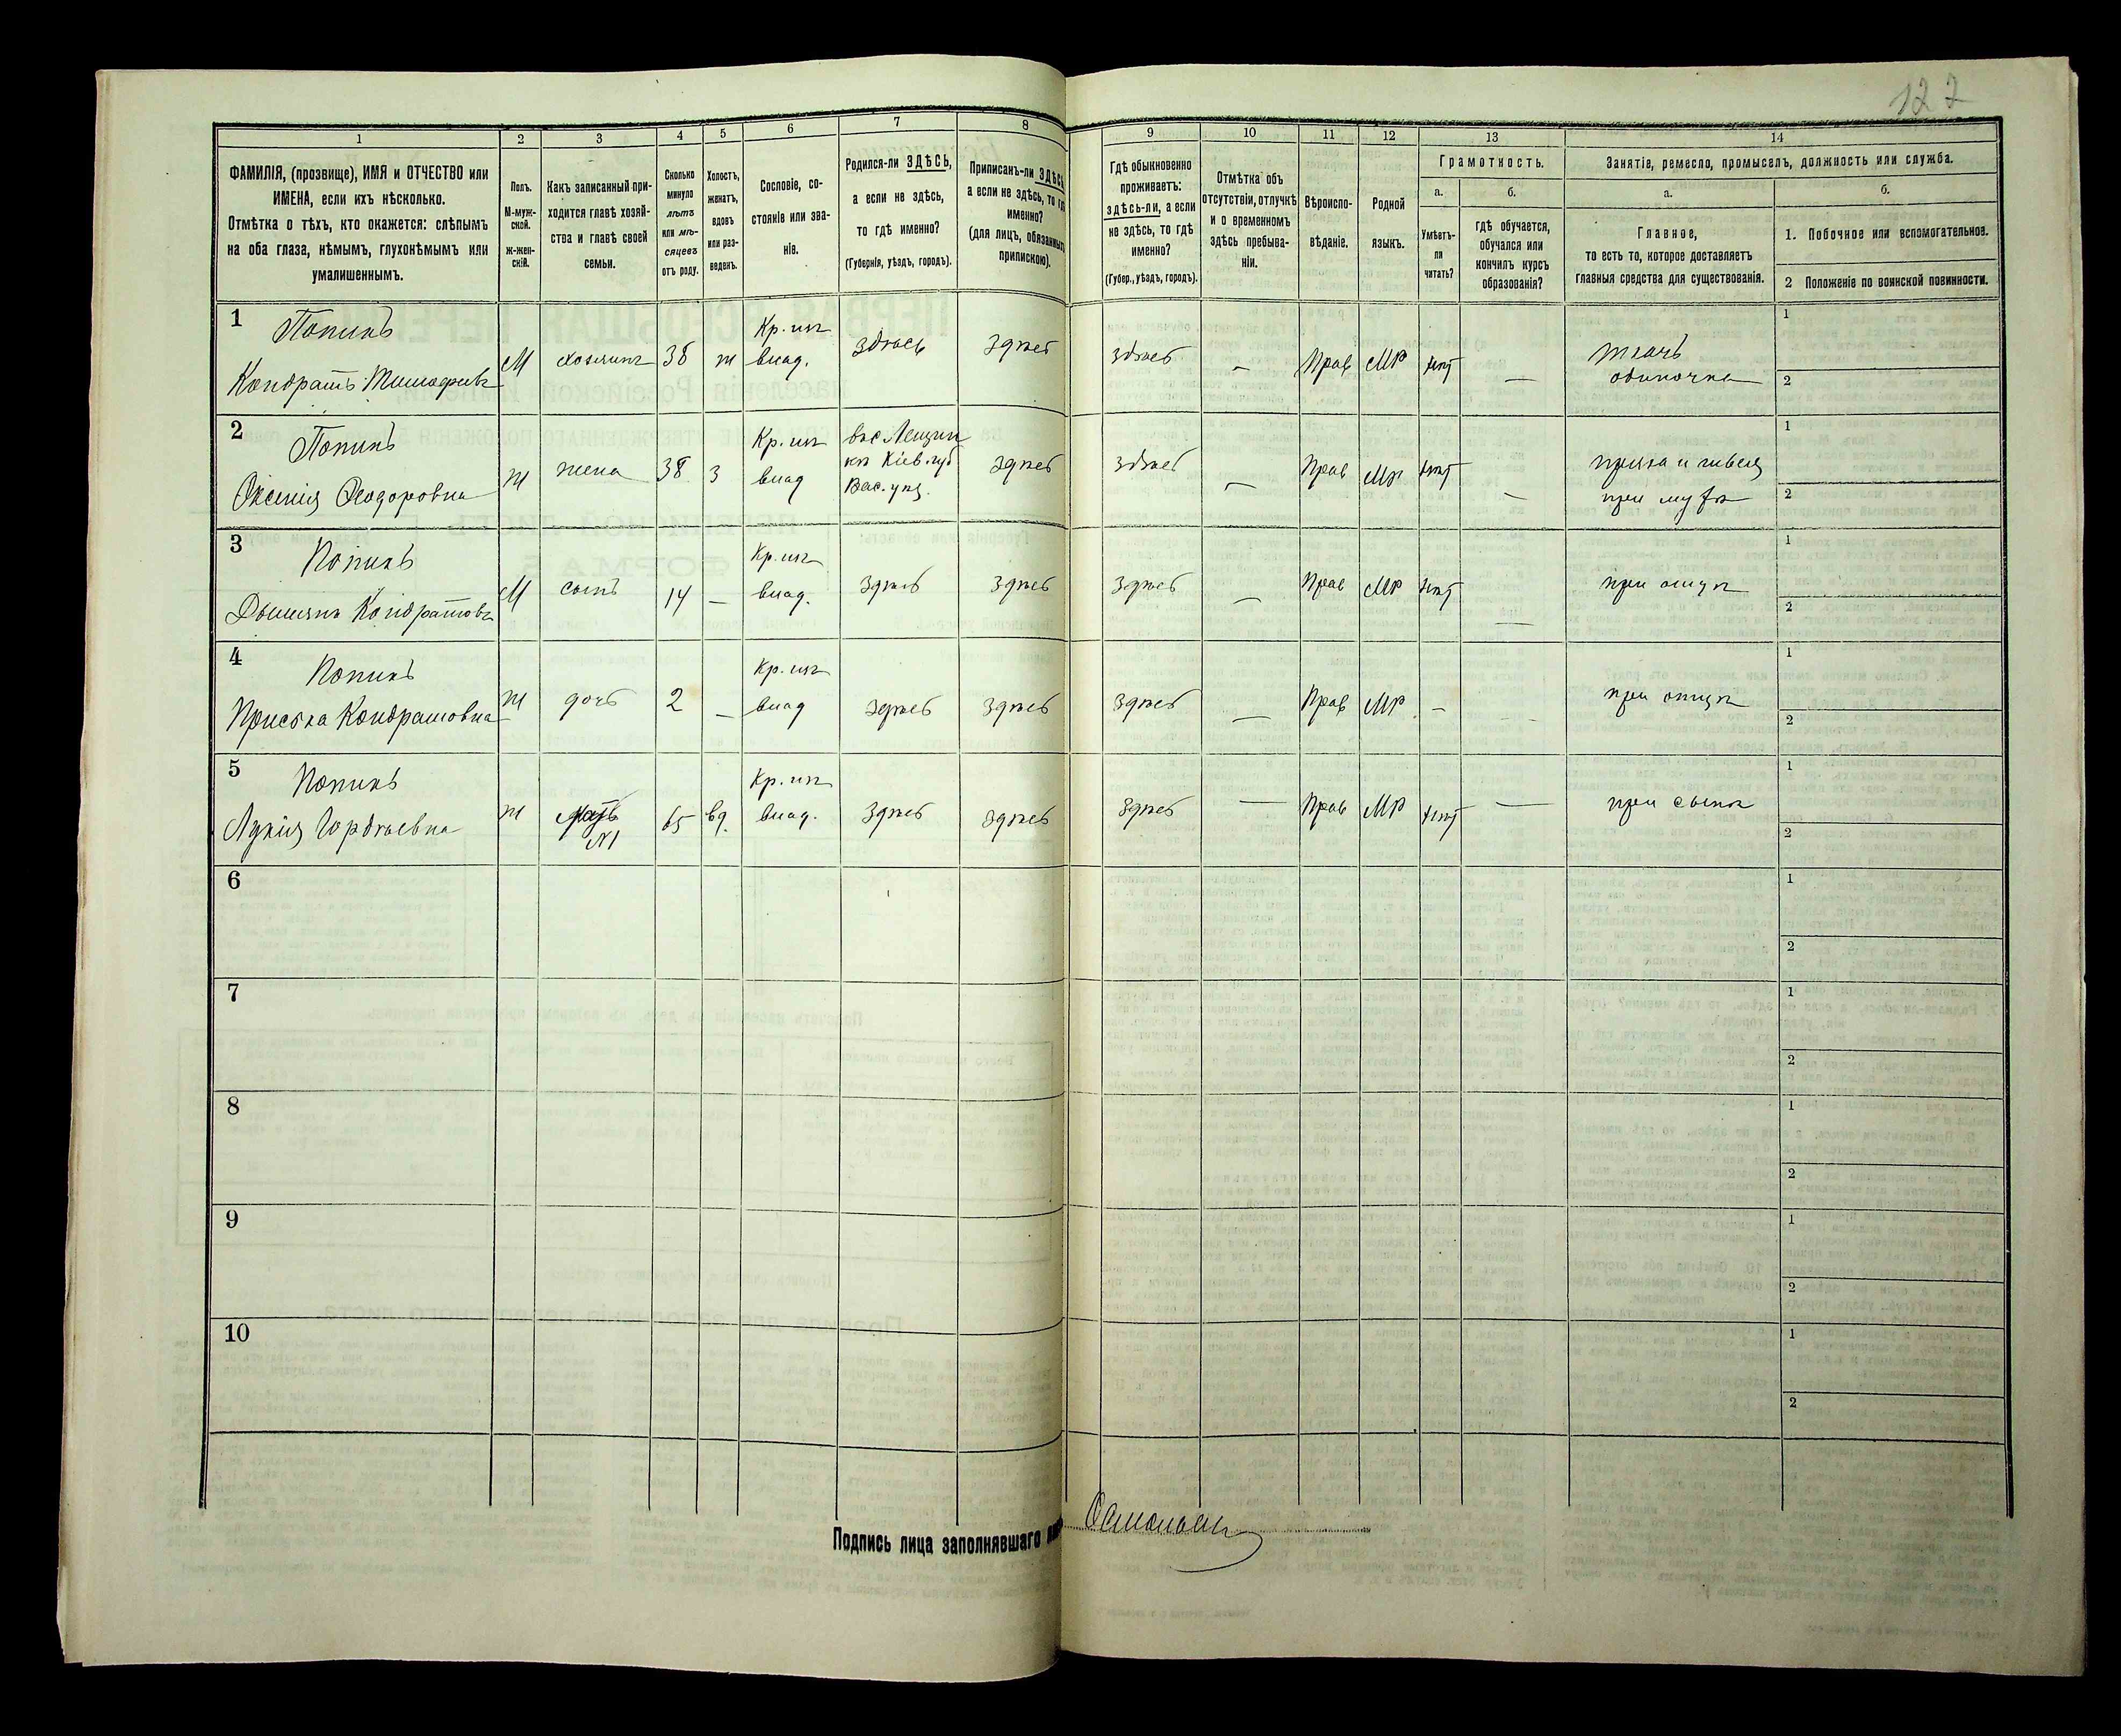 122
1
2
3
4
5
6
7
8
9
10
11
12
13
14
ФАМИЛІЯ, (прозвище), ИМЯ и ОТЧЕСТВО или
ИМЕНА, если ихъ нѣсколько.
Отмѣтка о тѣхъ, кто окажется: слѣпымъ
на оба глаза, нѣмымъ, глухонѣмымъ или
умалишеннымъ.
Полъ.
М-муж-
ской.
ж-жен-
скій.
Какъ записанный при-
ходится главѣ хозяй-
ства и главѣ своей
семьи.
Сколько
минуло
лѣтъ
или мѣ-
сяцевъ
отъ роду.
Холостъ,
женатъ,
вдовъ
или раз-
веденъ.
Сословіе, со-
стояніе или зва-
ніе.
Родился-ли ЗДѢСЬ,
а если не здѣсь,
то гдѣ именно?
(Губернія, уѣздъ, городъ).
Приписанъ-ли ЗДѢСЬ
а если не здѣсь, то гдѣ
именно?
(для лицъ, обязанныхъ
припискою).
Гдѣ обыкновенно
проживаетъ:
здѣсь-ли, а если
не здѣсь, то гдѣ
именно?
(Губер., уѣздъ, городъ).
Отмѣтка объ
отсутствіи, отлучкѣ
и о временномъ
здѣсь пребыва-
ніи.
Вѣроиспо-
вѣданіе.
Родной
языкъ.
Грамотность.
а.
б.
Умѣетъ-
ли
читать?
гдѣ обучается,
обучался или
кончилъ курсъ
образованія?
Занятіе, ремесло, промыселъ, должность или служба.
а.
б.
Главное,
то есть то, которое доставляетъ
главныя средства для существованія.
1. Побочное или вспомогательное.
2 Положеніе по воинской повинности.
1
Попикъ
Кондратъ
М
хозяинъ
38
ж
Кр. изъ
влад.
здѣсь
здѣсь
здѣсь
—
Прав
МР
нѣт
—
ткачъ
одиночка
1
2
2
Попикъ
Оксенія Ѳеодоровна
ж
жена
38
з
Кр. изъ
влад
Кіев. губ
Вас. уѣз.
здѣсь
здѣсь
—
Прав
МР
нѣт
—
пряха и швея
при мужѣ
1
2
3
Попикъ
Дымянъ Кондратовъ
М
сынъ
14
—
Кр. изъ
влад.
здѣсь
здѣсь
здѣсь
—
Прав
МР
нѣт
—
при отцѣ
1
2
4
Попикъ
Приська Кондратовна
ж
дочь
2
—
Кр. изъ
влад
здѣсь
здѣсь
здѣсь
—
Прав
МР
—
при отцѣ
1
2
5
Попикъ
Лукія Гордѣевна
ж
мать
№1
65
вд.
Кр. изъ
влад.
здѣсь
здѣсь
здѣсь
—
Прав
МР
нѣт
—
при сынѣ
1
2
6
1
2
7
1
2
8
1
2
9
1
2
10
1
2
Подпись лица заполнявшаго